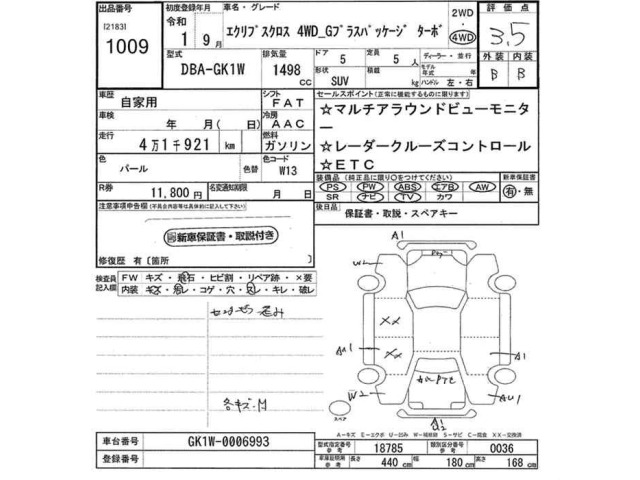 出品番号
[2183]
1009
初度登録年月
令和
1年 9月
車名・グレード
エクリプスクロス 4WD_Gプラスパッケージ ターボ
2WD
・
4WD
評価点
3.5
外装 内装
B B
型式
DBA-GK1W
排気量
1498
cc
ドア
5
定員
5 人
形状
SUV
積載
kg
ディーラー・並行
モデル年式 年
ハンドル 左・右
車歴
自家用
シフト
FAT
車検
年 月( 日)
冷房
AAC
走行
4万1千921 km
燃料
ガソリン
色
パール
色替
色コード
W13
R券
11,800 円
名変通知期限
月 日
セールスポイント(正常に機能するものに限ります。)
☆マルチアラウンドビューモニタ
ー
☆レーダークルーズコントロール
☆ETC
装備品(純正品に限り○をつけてください)
PS PW ABS エアB AW
SR ナビ TV カワ
新車保証書
有・無
後日品
保証書・取説・スペアキー
注意事項申告欄(不具合内容等は具体的に記入して下さい)
新車保証書・取説付き
修復歴 有〔箇所 〕
検査員記入欄
FW キズ・飛石・ヒビ割・リペア跡・×要
内装 キズ・汚レ・コゲ・穴・スレ・キレ・破レ
各キズ.凹
A1
W2
XX
XX
A1
W2
AU1
スペア
A-キズ E-エクボ U-凹み W-補修跡 S-サビ C-腐食 XX-交換済
車台番号
GK1W-0006993
登録番号
型式指定番号 参考
18785
類別区分番号 参考
0036
車庫証明用 参考
長さ 440 cm
幅 180 cm
高さ 168 cm